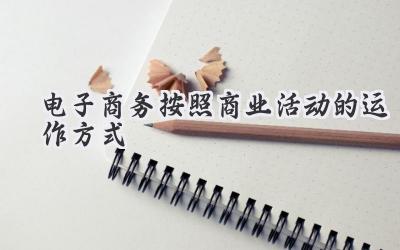 电子商务按照商业活动的运
作方式